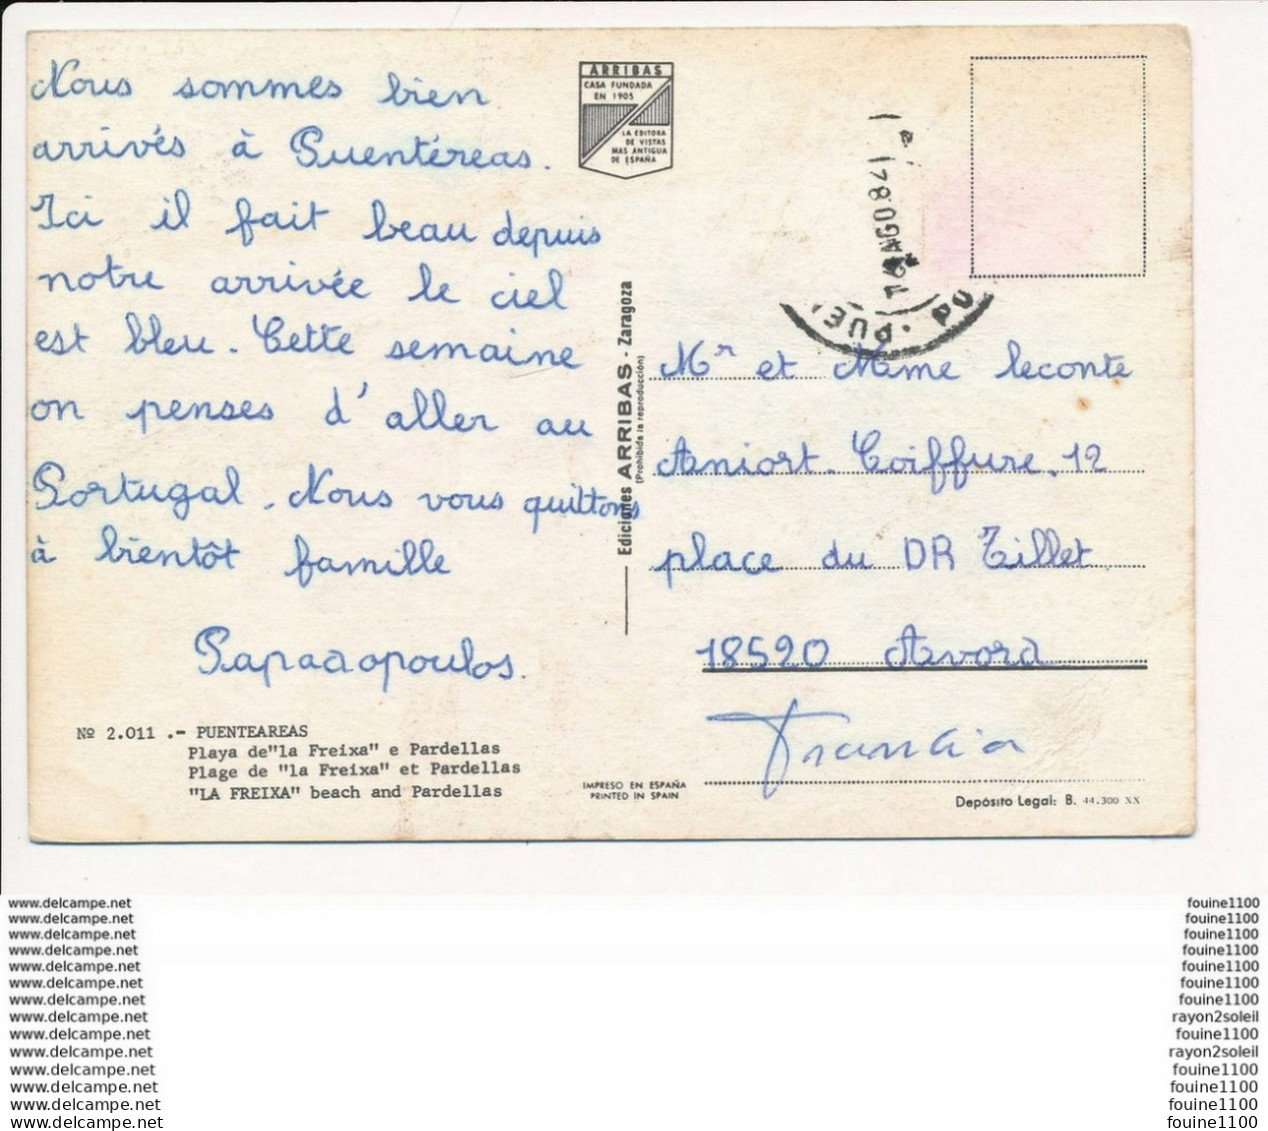 Nous sommes bien
arrivés à Puentéreas.
Ici il fait beau depuis
notre arrivée le ciel
est bleu. Cette semaine
on penses d'aller au
Portugal. Nous vous quittons
à bientôt famille
№ 2.011 .- PUENTEAREAS
Playa de"la Freixa" e Pardellas
Plage de "la Freixa" et Pardellas
"LA FREIXA" beach and Pardellas
ARRIBAS
CASA FUNDADA
EN 1905
LA EDITORA
DE VISTAS
MAS ANTIGUA
DE ESPAÑA
Ediciones ARRIBAS - Zaragoza
(Prohibida la reproducción)
IMPRESO EN ESPAÑA
PRINTED IN SPAIN
AGO.84
Mr et Mme leconte
Aniort. Coiffure. 12
place du DR Tillet
18520 Avord
Francia
Depósito Legal: B. 44.300 XX
www.delcampe.net
www.delcampe.net
www.delcampe.net
www.delcampe.net
www.delcampe.net
www.delcampe.net
www.delcampe.net
www.delcampe.net
www.delcampe.net
www.delcampe.net
www.delcampe.net
www.delcampe.net
www.delcampe.net
www.delcampe.net
fouine1100
fouine1100
fouine1100
fouine1100
fouine1100
fouine1100
fouine1100
rayon2soleil
fouine1100
rayon2soleil
fouine1100
fouine1100
fouine1100
fouine1100